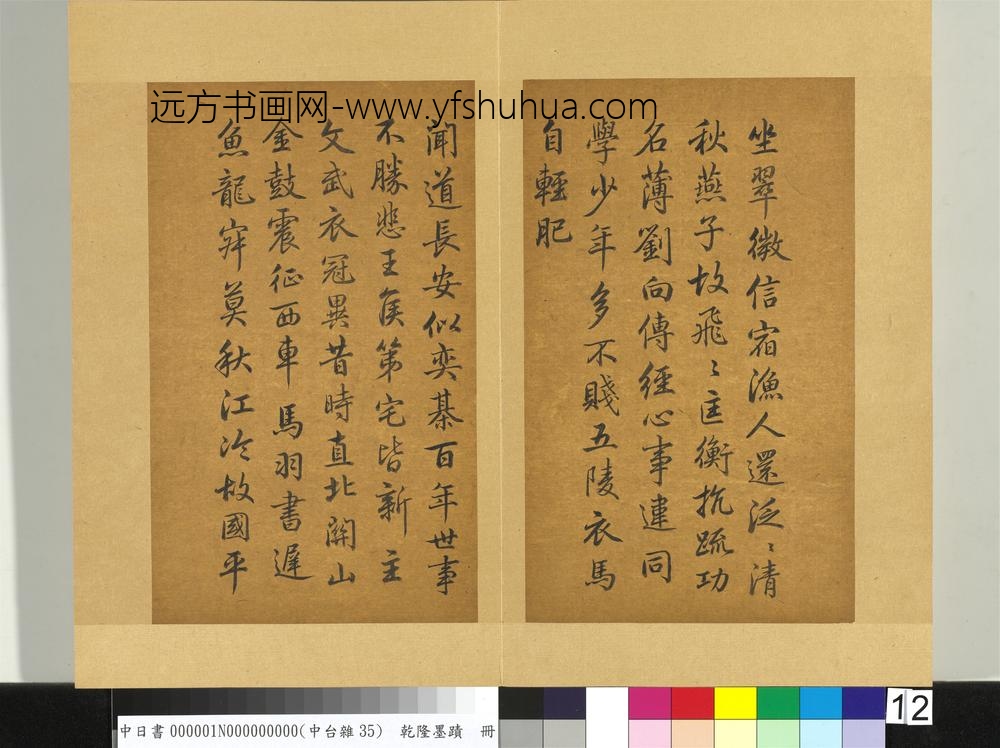 远方书画网-www.yfshuhua.com
坐翠微信宿漁人還泛〻清
秋燕子故飛〻匡衡抗疏功
名薄劉向傳經心事違同
學少年多不賤五陵衣馬
自輕肥
聞道長安似奕棊百年世事
不勝悲王侯第宅皆新主
文武衣冠異昔時直北關山
金鼓震征西車馬羽書遲
魚龍寂寞秋江冷故國平
中日書000001N000000000(中台雜35) 乾隆墨蹟 冊
12